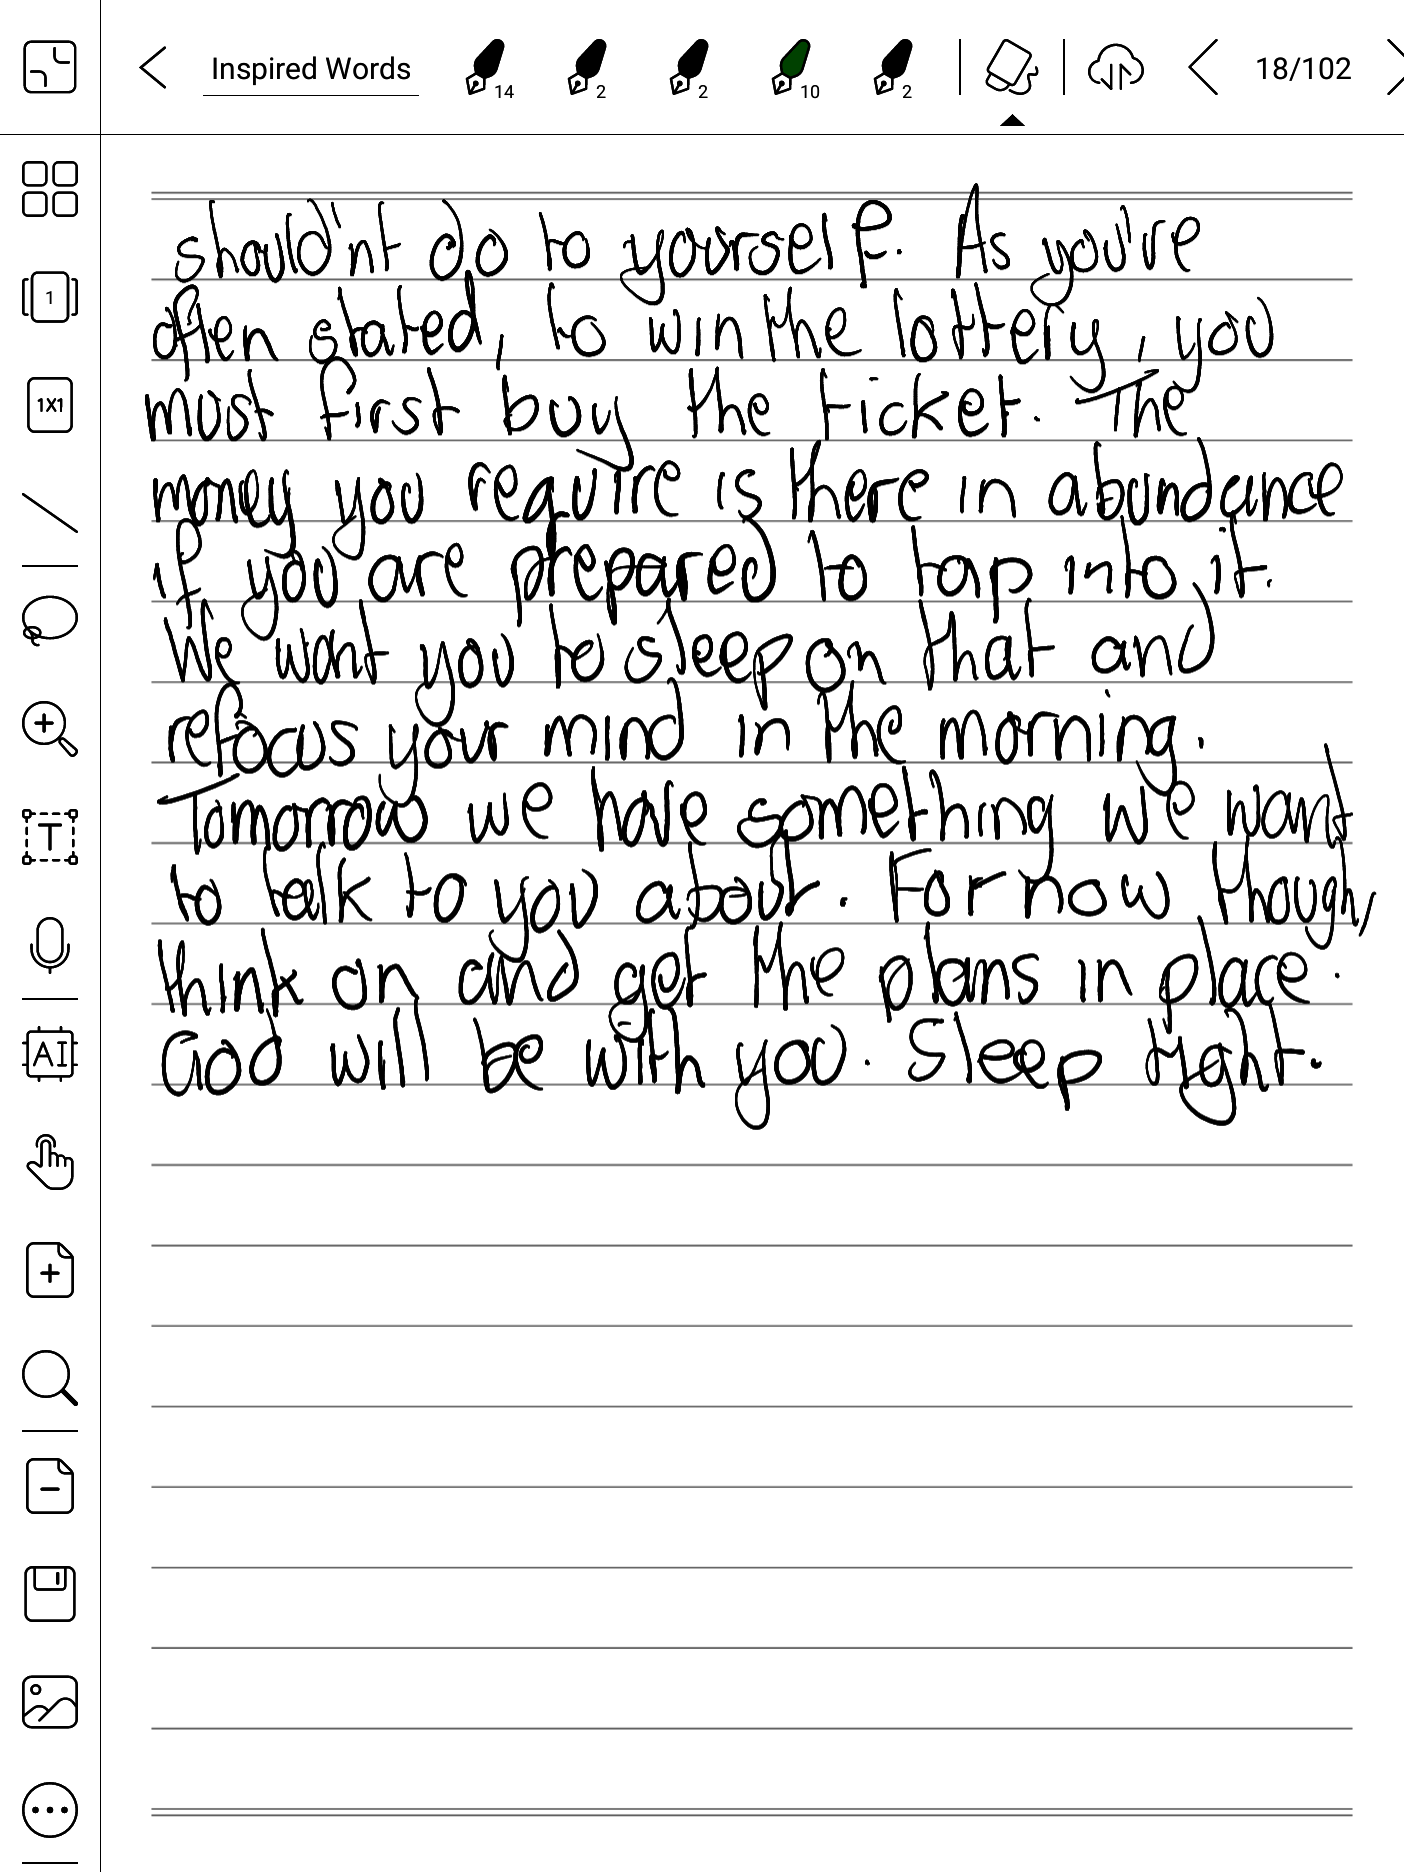 Inspired Words
14
2
2
10
2
18/102
1
1X1
T
AI
should'nt do to yourself. As you've
often stated, to win the lottery, you
must first buy the ticket. The
money you require is there in abundance
if you are prepared to tap into it.
We want you to sleep on that and
refocus your mind in the morning.
Tomorrow we have something we want
to talk to you about. For now though,
think on and get the plans in place.
God will be with you. Sleep tight.